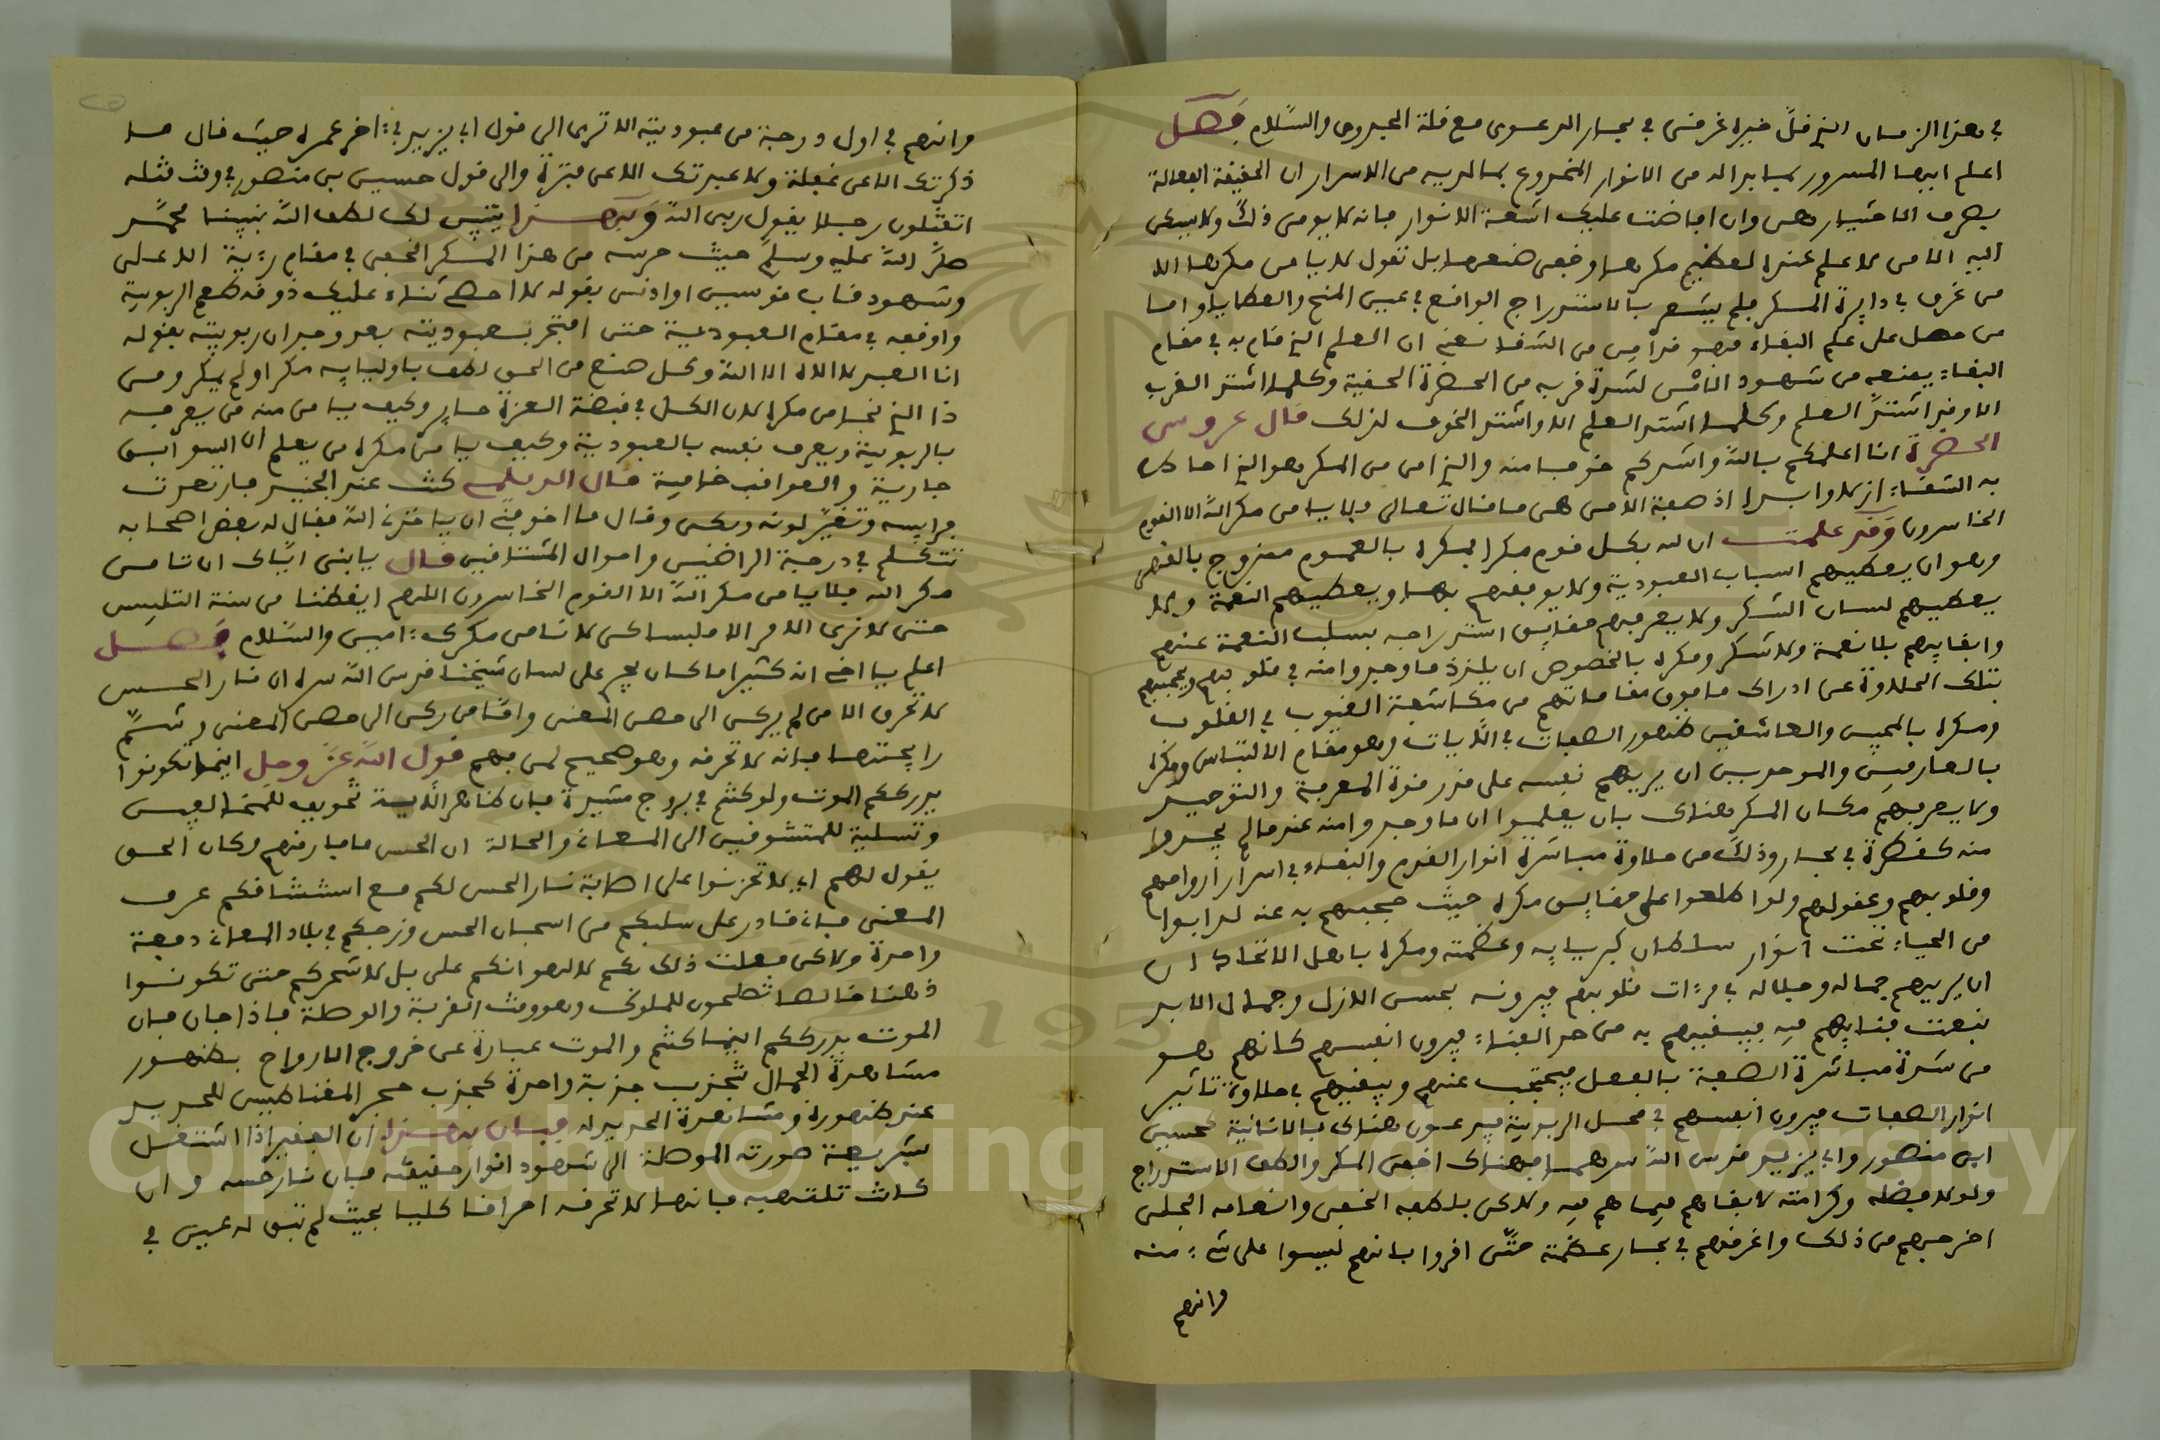 في هذا الزمان الذي قل خيره غرقنى في بحار الدعوى مع قلة الجدوى والسّلام فَصل
اعلم ايها المسرور بما بدا له من الانوار المخدوع بما لديه من الاسرار ان الحقيقة الفعالة
بصرف الاختيار هى وان افاضت عليك اشعة الانوار فانه لا يومن ذلك ولا يبقى
اليه الا من لا علم عنده لعظيم مكرها وخفى صنعها بل نقول لا يا من مكرها الا
من غرق في دايرة السكر فلم يشعر بالاستدراج الواقع في عين المنح والعطايا واما
من حصل على علم البقاء فهو خرامن من الشقا نعني ان العلم الذي قام به في مقام
البقاء يمنعه من شهود الامن لشدة قربه من الحضرة الحقية وكلما اشتد القرب
الا وقد اشتدّ العلم وكلما اشتد العلم الا واشتد الخوف لذلك قال عروس
الحضرة انا اعلمكم بالله واشدكم خوفا منه والذي امن من المكر هو الذي احاط
به الشقاء ازلا وابدا اذ صفة الامن هى ما قال تعالى فلا يا من مكر الله الا القوم
الخاسرون وَقد علمت ان له بكل قوم مكرا فمكره بالعموم ممزوج بالقهر
وهو ان يعطيهم اسباب العبودية ولا يوفقهم بها ويعطيهم النعمة ولا
يعطيهم لسان الشكر ولا يعرفهم حقايق استدراجه بسلب النعمة عنهم
وابقايهم بلا نعمة ولا شكر ومكره بالخصوص ان يلذذ ما وجدوا منه في قلوبهم ويحجبهم
بتلك الحلاوة عن ادراك ما فوق مقاماتهم من مكاشفة الغيوب في القلوب
ومكره بالمحبين والعاشقين ظهور الصفات في الايات وهو مقام الالتباس ومكره
بالعارفين والموحدين ان يريهم نفسه على قدر قوة المعرفة والتوحيد
ولا يعرفهم مكان المكر هناك بان يعلموا ان ما وجدوا منه عند ما لم يجدوا
منه كقطرة في بحار وذلك من حلاوة مباشرة انوار القدم والبقاء في اسرار ارواحهم
وقلوبهم وعقولهم ولو اطلعوا على حقايق مكره حيث حجبهم به عنه لذابوا
من الحياء تحت انوار سلطان كبريايه وعظمته ومكره باهل الاتحاد ان
ان يريهم جماله وجلاله في مرءات قلوبهم فيرونه بحسن الازل وجمال الابد
بنعت فنايهم فيه فيبقيهم به من حد الفناء فيرون انفسهم كانهم هو
من شدة مباشرة الصفة بالفعل فيحتجب عنهم ويبقيهم في حلاوة تاثير
انوار الصفات فيرون انفسهم في محل الربوبية فيدعون هناك بالانانية كحسين
ابن منصور وابي يزيد قدس الله سرهما فهناك اخفى المكر والطف الاستدراج
ولولا فضله وكرامته لابقاهم فيما هم فيه ولاكن بلطفه الخفى وانعامه الجلى
اخرجهم من ذلك واغرقهم في بحار عظمته حتّى اقروا بانهم ليسوا على شيء منه
وانهم
وانهم في اول درجة من عبوديته الا ترى الى قول ابي يزيد في ءاخر عمره حيث قال ما
ذكرتك الا عن غفلة ولا عبدتك الا عن فترة والى قول حسين بن منصور في وقت قتله
اتقتلون رجلا يقول ربى الله وَبِهذا يتبين لك لطف الله بنبينا محمَّد
صلَّى الله عليه وسلم حيث حرسه من هذا المكر الخفى في مقام رءية الاعلى
وشهود قاب قوسين او ادنى بقوله لا احصى ثناء عليك ذوقه طعم الربوبية
واوقفه في مقام العبودية حتى افتخر بعبوديته بعد وجدان ربوبيته بقوله
انا العبد لا اله الا الله وكل صنع من الحق لطف باوليايه مكرا ولم يمكر ومن
ذا الذي نجا من مكره لان الكل في قبضة العزة حاير وكيف يا من منه من يعرفه
بالربوبية ويعرف نفسه بالعبودية وكيف يا من مكره من يعلم ان السوابق
جارية والعواقب خافية قال الديلمى كنت عند الجنيد فارتعدت
فرايصه وتغيّر لونه وبكى وقال ما اخوفني ان يا خذني الله فقال له بعض اصحابه
تتكلم في درجة الراضين واحوال المشتاقين قال يا بنى ايّاك ان تامن
مكر الله فلا يا من مكر الله الا القوم الخاسرون اللهم ايقظنا من سنة التلبيس
حتى لا نرى الامر الا ملبسا كى لا نامن مكرك ءامين والسّلام فصل
اعلم يا اخى انه كثيرا ما كان يجرى على لسان شيخنا قدس الله سره ان نار الحس
لا تحرق الا من لم يركن الى حصن المعنى وامّا من ركن الى حصن المعنى وشمّ
رايحتها فانه لا تحرقه وهو صحيح لمن فهم قول الله عزّ وجل اينما تكونوا
يدرككم الموت ولو كنتم في بروج مشيدة فان ظاهر الاية تخويف للمخالفين
وتسلية للمتشوقين الى المعاني والحالة ان الحس ما فارقهم وكان الحق
يقول لهم اى لا تحزنوا على اصابة نار الحس لكم مع استنشاقكم عرف
المعنى فانا قادر على سلبكم من اسجان الحس وزجكم في بلاد المعاني دفعة
واحدة ولاكن فعلت ذلك بكم لا لهوانكم على بل لاشحركم حتى تكونوا
ذهبا خالصا تصلحون للملوك وهو وقت القربة والوصلة فاذا حان حان
الموت يدرككم اينما كنتم والموت عبارة عن خروج الارواح بظهور
مشاهدة الجمال تنجذب جذبة واحدة كجذب حجر المغناطيس للحديد
عند ظهوره ومشاهدة الحديد له فبان بهذا ان الفقير اذا اشتغل
بشريعة صورته الموصلة الى شهود انوار حقيقته فان نار حسه وان
كانت تلتهبه فانها لا تحرقه احراقا كليا بحيث لم تبق له عين في